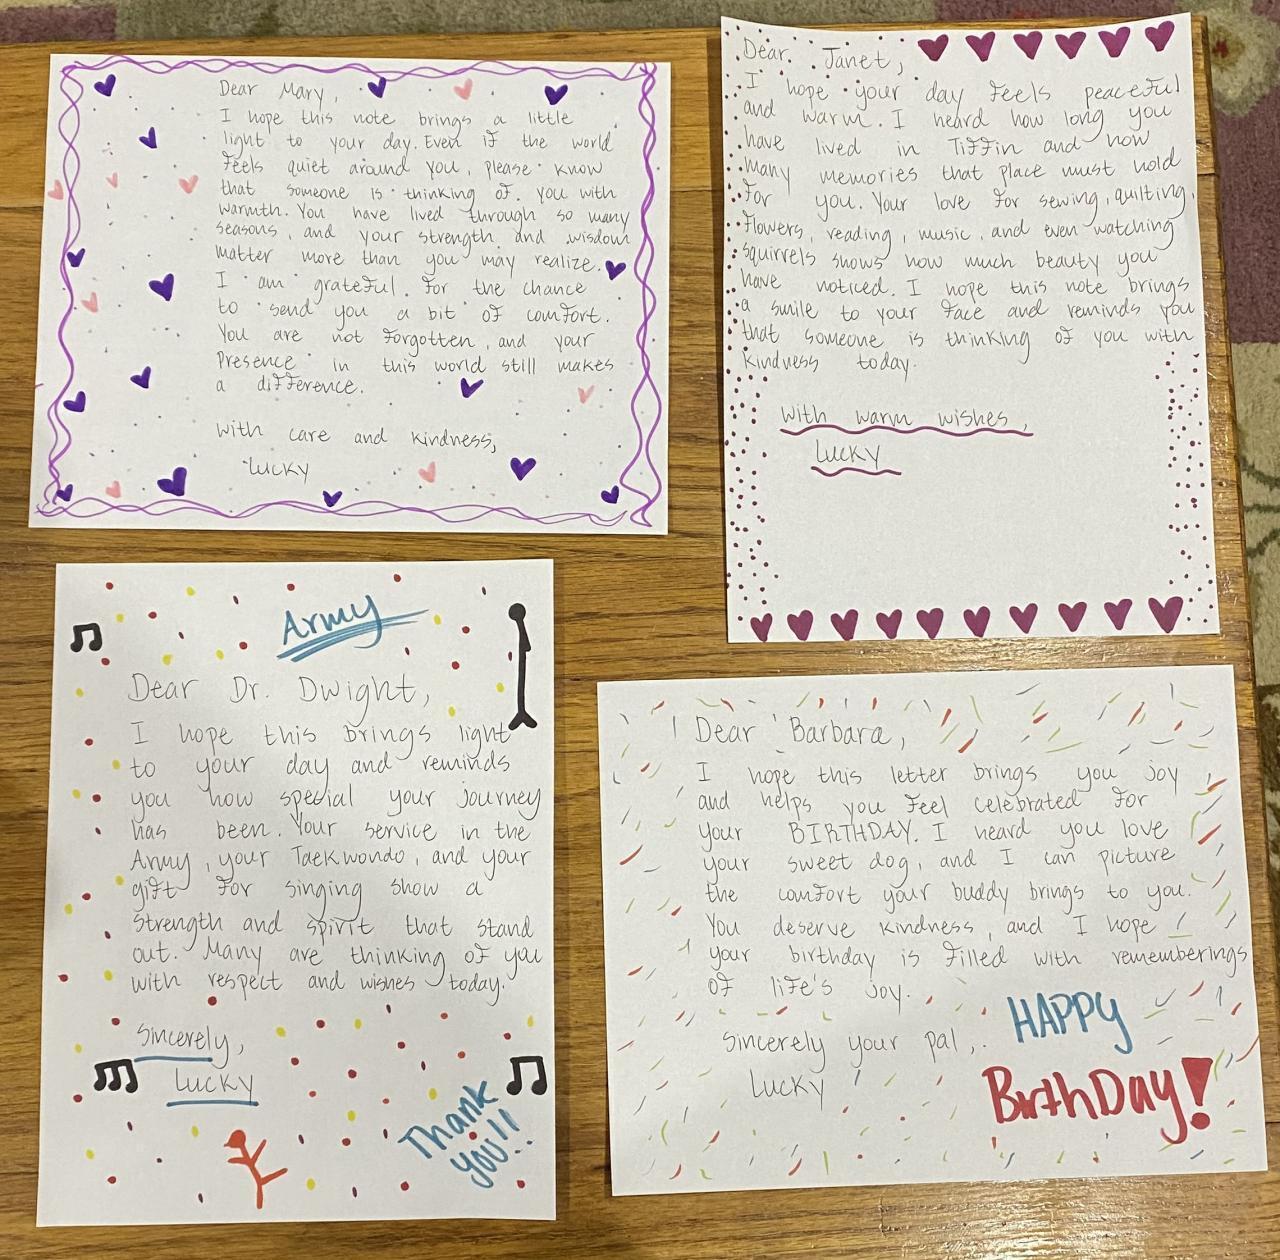 Dear Mary,
I hope this note brings a little
light to your day. Even if the world
feels quiet around you, please know
that someone is thinking of you with
warmth. You have lived through so many
seasons, and your strength and wisdom
matter more than you may realize.
I am grateful for the chance
to send you a bit of comfort.
You are not forgotten, and your
Presence in this world still makes
a difference.
With care and kindness,
Lucky
Dear Janet,
I hope your day feels peaceful
and warm. I heard how long you
have lived in Tiffin and how
many memories that place must hold
for you. Your love for sewing, quilting,
flowers, reading, music, and even watching
squirrels shows how much beauty you
have noticed. I hope this note brings
a smile to your face and reminds you
that someone is thinking of you with
kindness today.
With warm wishes,
Lucky
Army
Dear Dr. Dwight,
I hope this brings light
to your day and reminds
you how special your journey
has been. Your service in the
Army, your Taekwondo, and your
gift for singing show a
strength and spirit that stand
out. Many are thinking of you
with respect and wishes today.
Sincerely,
Lucky
Thank
you!!
Dear Barbara,
I hope this letter brings you joy
and helps you feel celebrated for
your BIRTHDAY. I heard you love
your sweet dog, and I can picture
the comfort your buddy brings to you.
You deserve kindness, and I hope
your birthday is filled with rememberings
of life's joy.
Sincerely your pal,
Lucky
HAPPY
BirthDay!